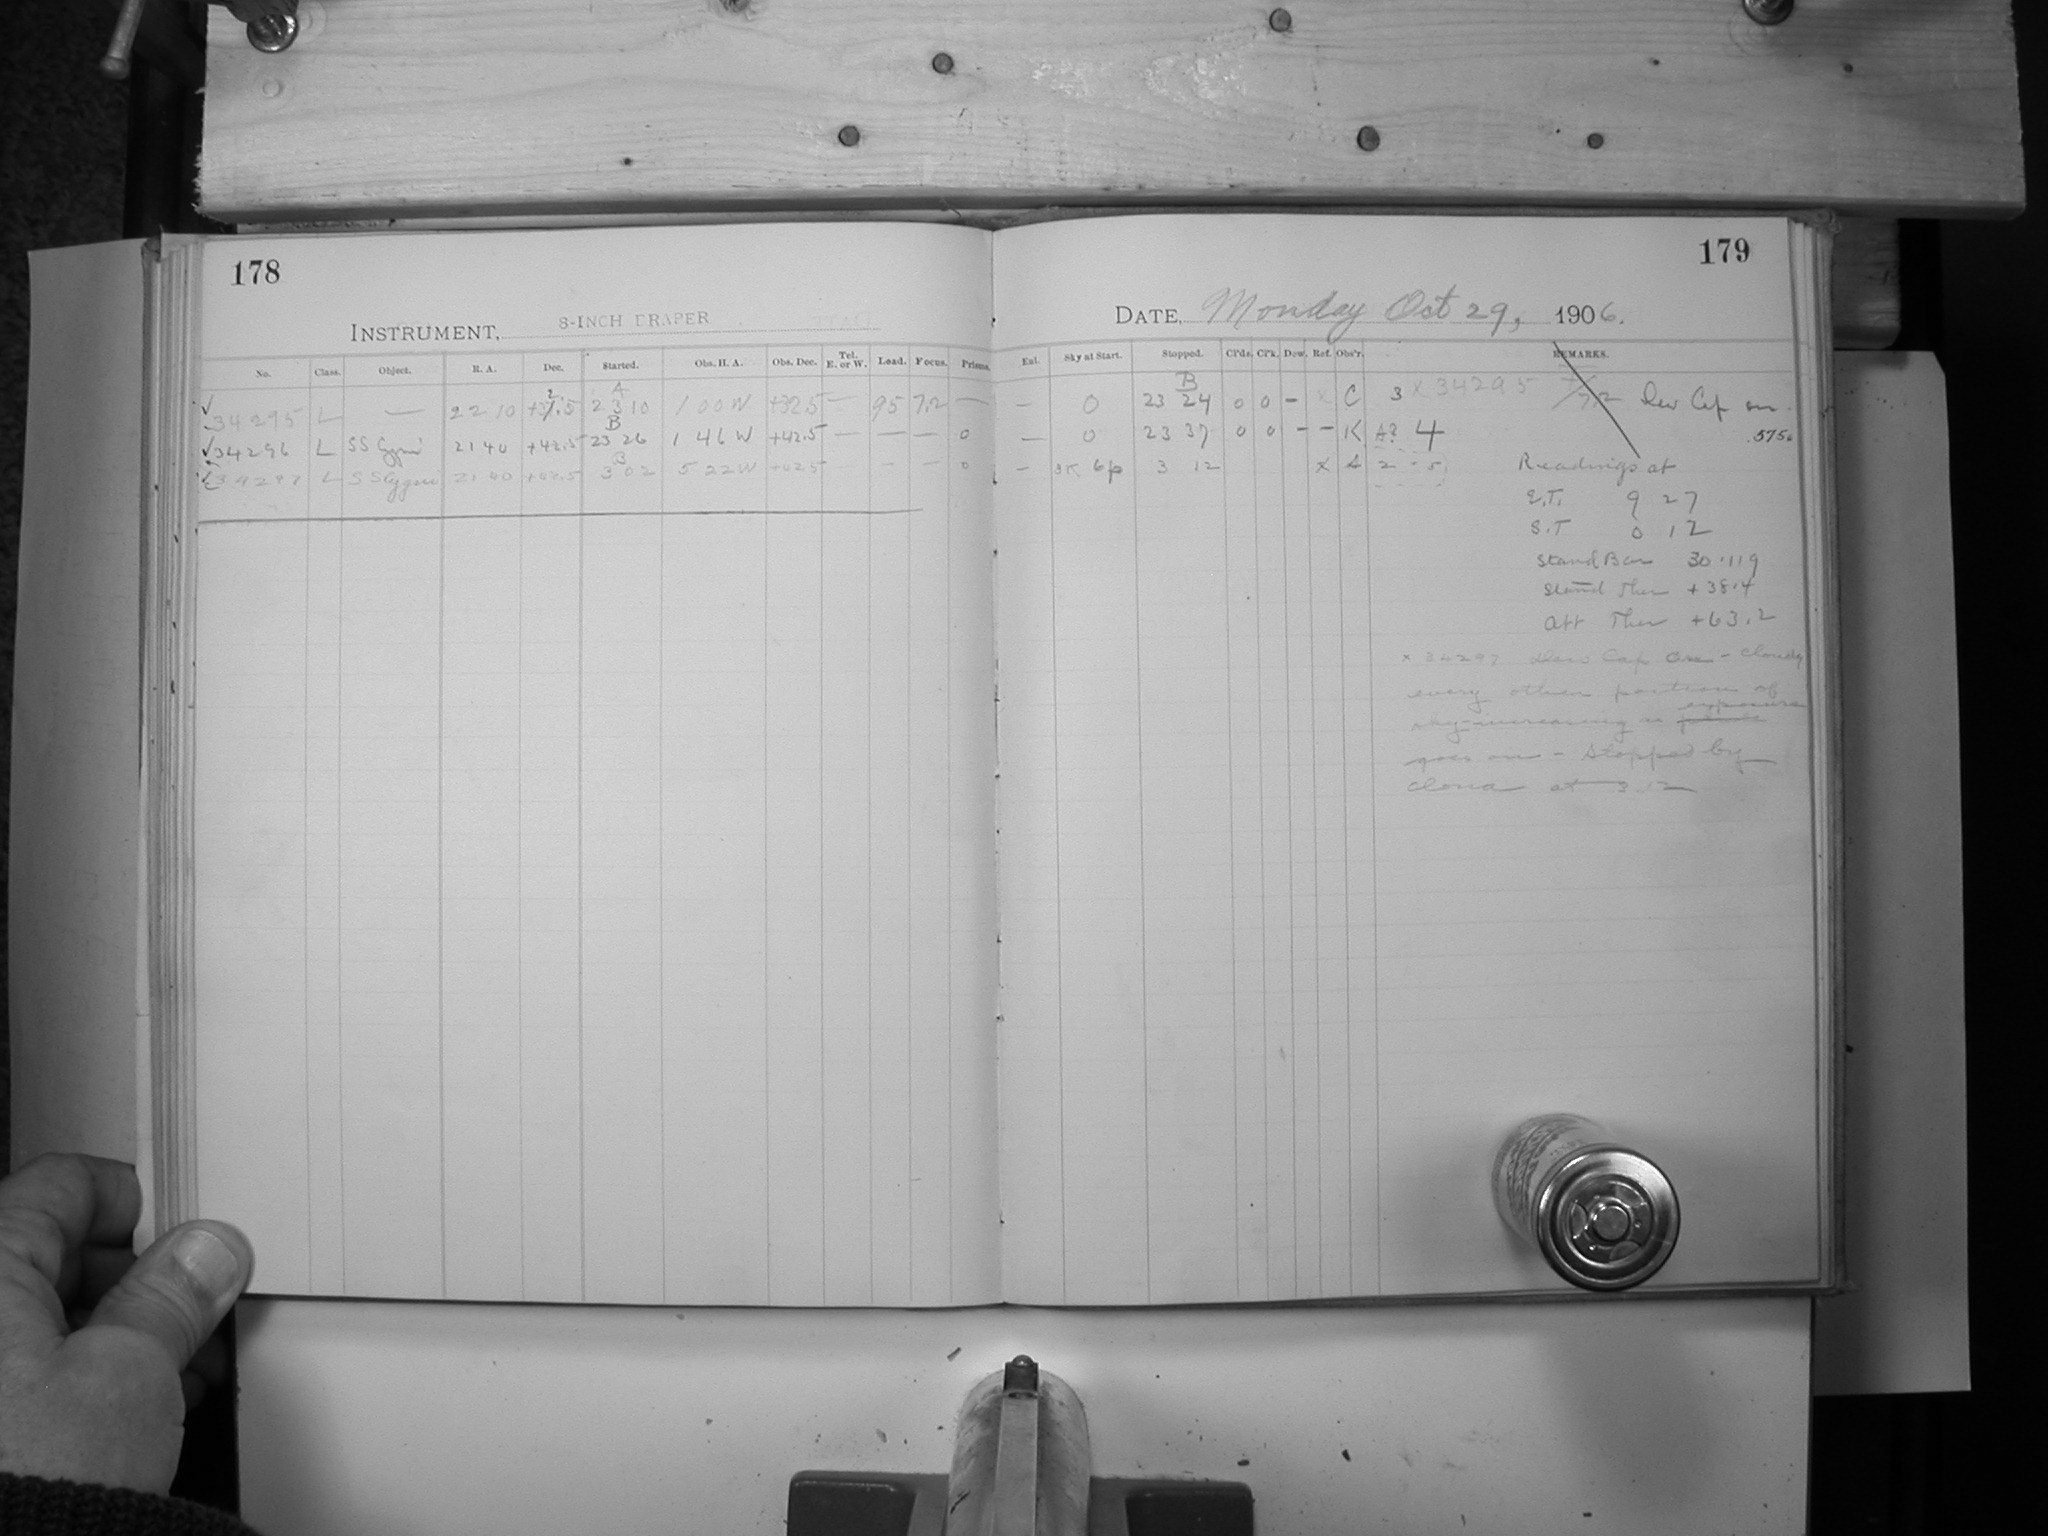 178
179
INSTRUMENT, 8-INCH DRAPER
DATE, Monday Oct 29, 1906.
No. Class. Object. R. A. Dec. Started. Obs. H. A. Obs. Dec. Tel. E. or W. Load. Focus. Prisms. Ent. Sky at Start. Stopped. Cl'ds. Cl'k. Dew. Ref. Obs'r. REMARKS.
A B
34295 L — 22 10 23 10 1 00 W +32.5 — 95 7.2 — — 0 23 24 0 0 - x C 3 x 34295 Dew Cap on
B
34296 L SS Cygni 21 40 +42.5 23 26 1 46 W +42.5 — — — 0 — 0 23 37 0 0 - - K A? 4 .575
B
34297 L SS Cygni 21 40 +42.5 3 02 5 22 W +42.5 — - - 0 - 3K 6p 3 12 x A 2 - 5
Readings at
E.T. 9 27
S.T 0 12
Stand Bar 30.119
Stand Ther +38.4
Att Ther +63.2
x 34297 Dew Cap on - cloudy
every other portion of
sky-increasing as exposure
goes on - Stopped by
cloud at 3 12